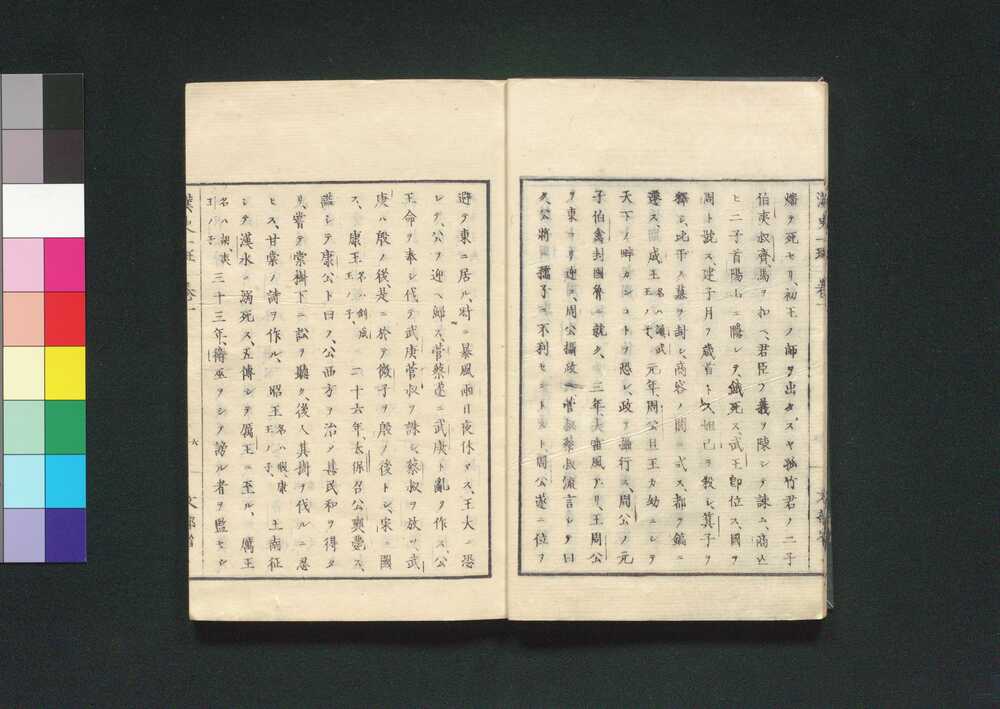 燔ヲ死セリ、初王ノ師ヲ出タスヤ孤竹君ノ二子
伯夷叔齊馬ヲ扣ヘ、君臣ノ義ヲ陳シテ諫ム、商亡
ヒ二子首陽山ニ隱レテ、餓死ス武王即位ス、國ヲ
周ト號ス、建子月ヲ歳首トス、妲己ヲ殺シ、箕子ヲ
釋シ、比干ノ墓ヲ封シ、商容ノ閭ニ式ス、都ヲ鎬ニ
遷ス、成王 名ハ誦、武王ノ子、元年、周公旦王ノ幼ニシテ
天下ノ畔カンコトヲ恐レ、政ヲ攝行ス、周公ノ元
子伯禽封國魯ニ就ク、三年、大雷風アリ、王周公
ヲ東ニ迎フ、周公攝政、管叔蔡叔流言シテ曰
ク公將ニ孺子ニ不利セントスト周公遂ニ位ヲ
漢史一班 卷一
避テ東ニ居ル、時ニ暴風雨日夜休マス、王大ニ恐
レテ、公ヲ迎ヘ歸ス、管蔡遂ニ武庚ト亂ヲ作ス、公
王命ヲ奉シ伐テ武庚管叔ヲ誅シ、蔡叔ヲ放ツ、武
庚ハ殷ノ後、是ニ於テ微子ヲ殷ノ後トシ、宋ニ國
ス、康王 名ハ釗、成王ノ子、二十六年、太保召公奭薨ス、
謚シテ康公ト曰フ、公西方ヲ治メ其民和ヲ得タ
リ、嘗テ棠樹下ニ訟ヲ聽ク、後人其樹ヲ伐ルニ忍
ヒス、甘棠ノ詩ヲ作ル、昭王 名ハ瑕、康王ノ子、土南征
シテ漢水ニ溺死ス、五傳シテ厲王ニ至ル、厲王
名ハ胡、夷王ノ子 三十三年、衛巫ヲシテ謗ル者ヲ監セシ
六
文部省